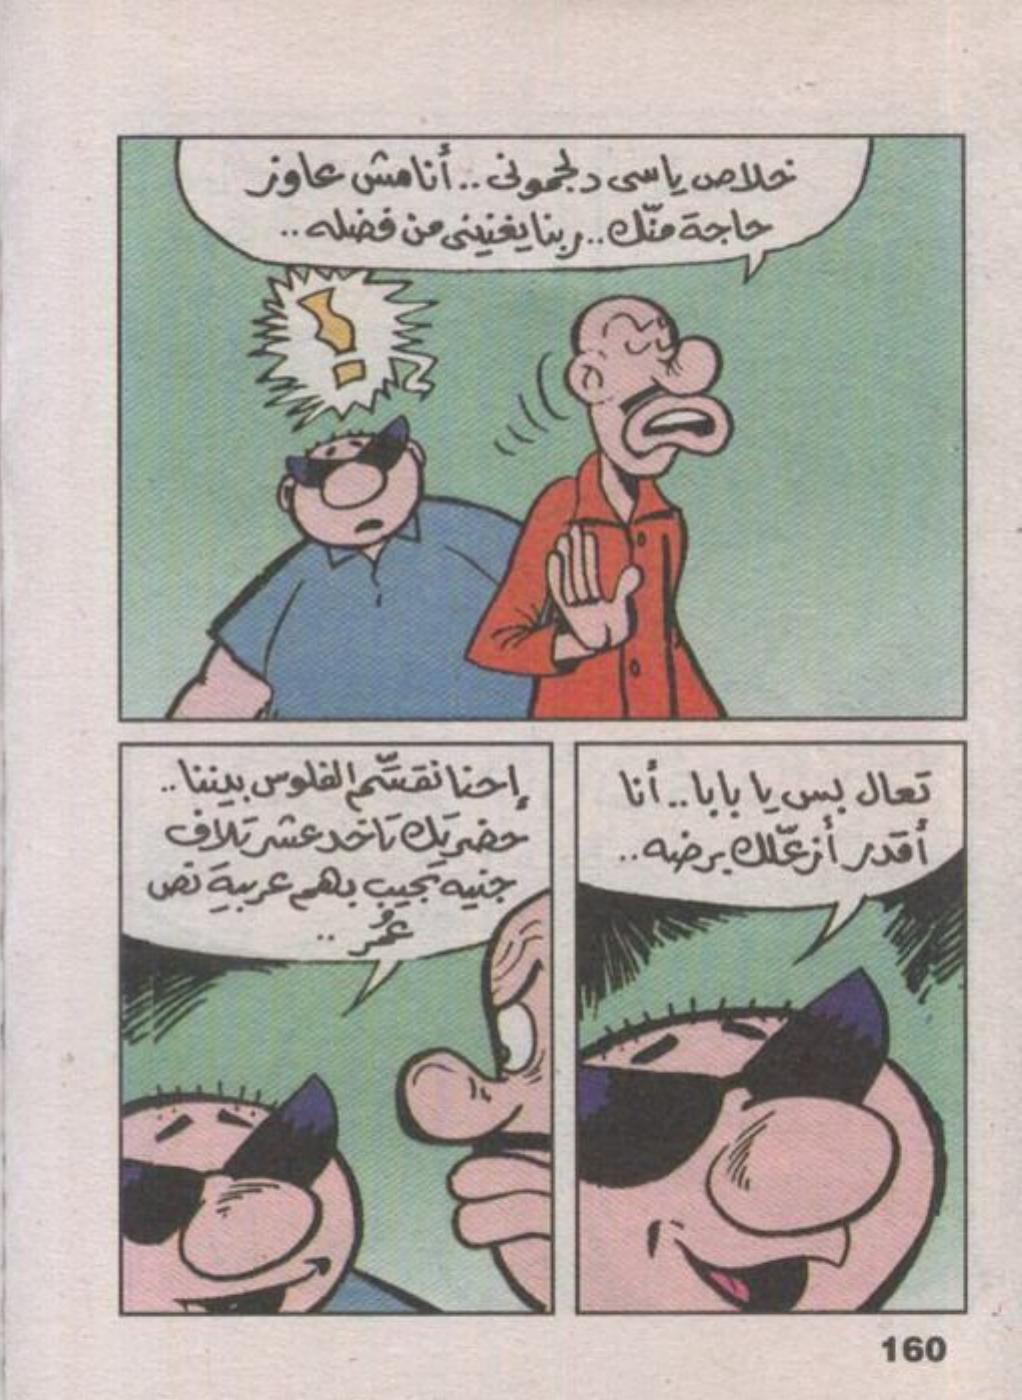 خلاص يا سى دلجمونى .. أنا مش عاوز
حاجة منّك .. ربنا يغنينى من فضله ..
!
تعال بس يا بابا .. أنا
أقدر أزعّلك برضه ..
إحنا نقسّم الفلوس بيننا ..
حضرتك تاخد عشرتلاف
جنيه تجيب بهم عربية نص
عُمر ..
160